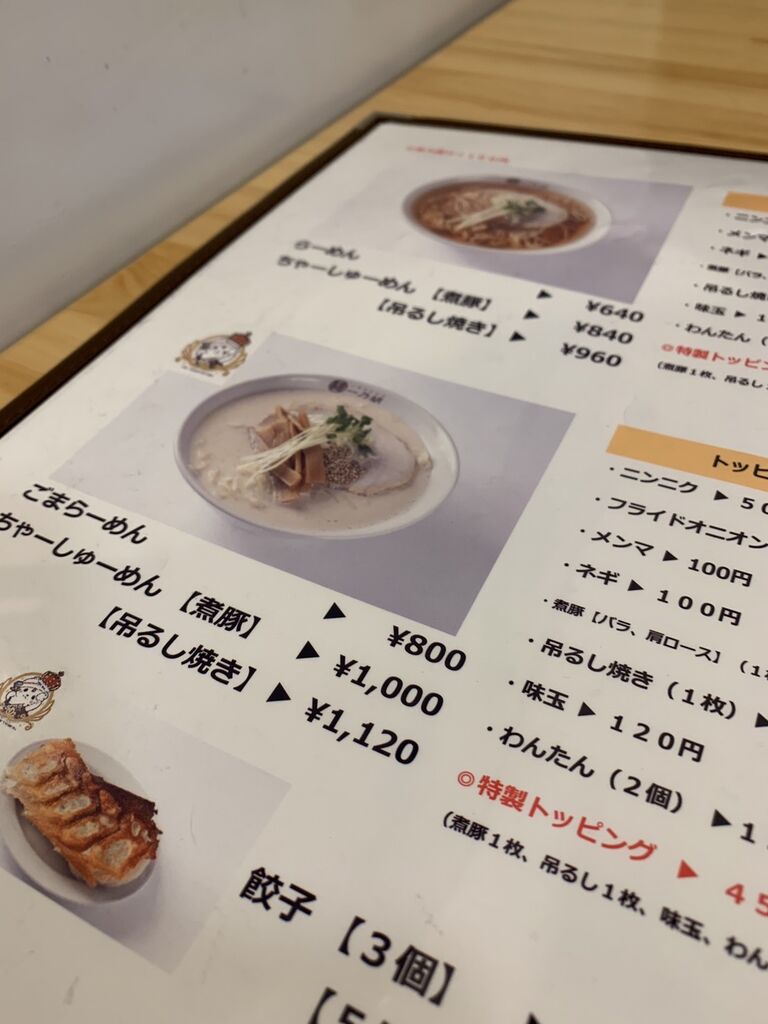 らーめん ▶ ¥640
ちゃーしゅーめん 【煮豚】 ▶ ¥840
【吊るし焼き】 ▶ ¥960
ごまらーめん ▶ ¥800
ちゃーしゅーめん 【煮豚】 ▶ ¥1,000
【吊るし焼き】 ▶ ¥1,120
餃子 【3個】
・メンマ
・ネギ ▶
・吊るし焼
・味玉 ▶ 1
・わんたん（
◎特製トッピン
（煮豚1枚、吊るし
トッピ
・ニンニク ▶ 50
・フライドオニオン
・メンマ ▶ 100円
・ネギ ▶ 100円
・煮豚【バラ、肩ロース】（1
・吊るし焼き（1枚）▶
・味玉 ▶ 120円
・わんたん（2個）▶1
◎特製トッピング ▶ 45
（煮豚1枚、吊るし1枚、味玉、わん